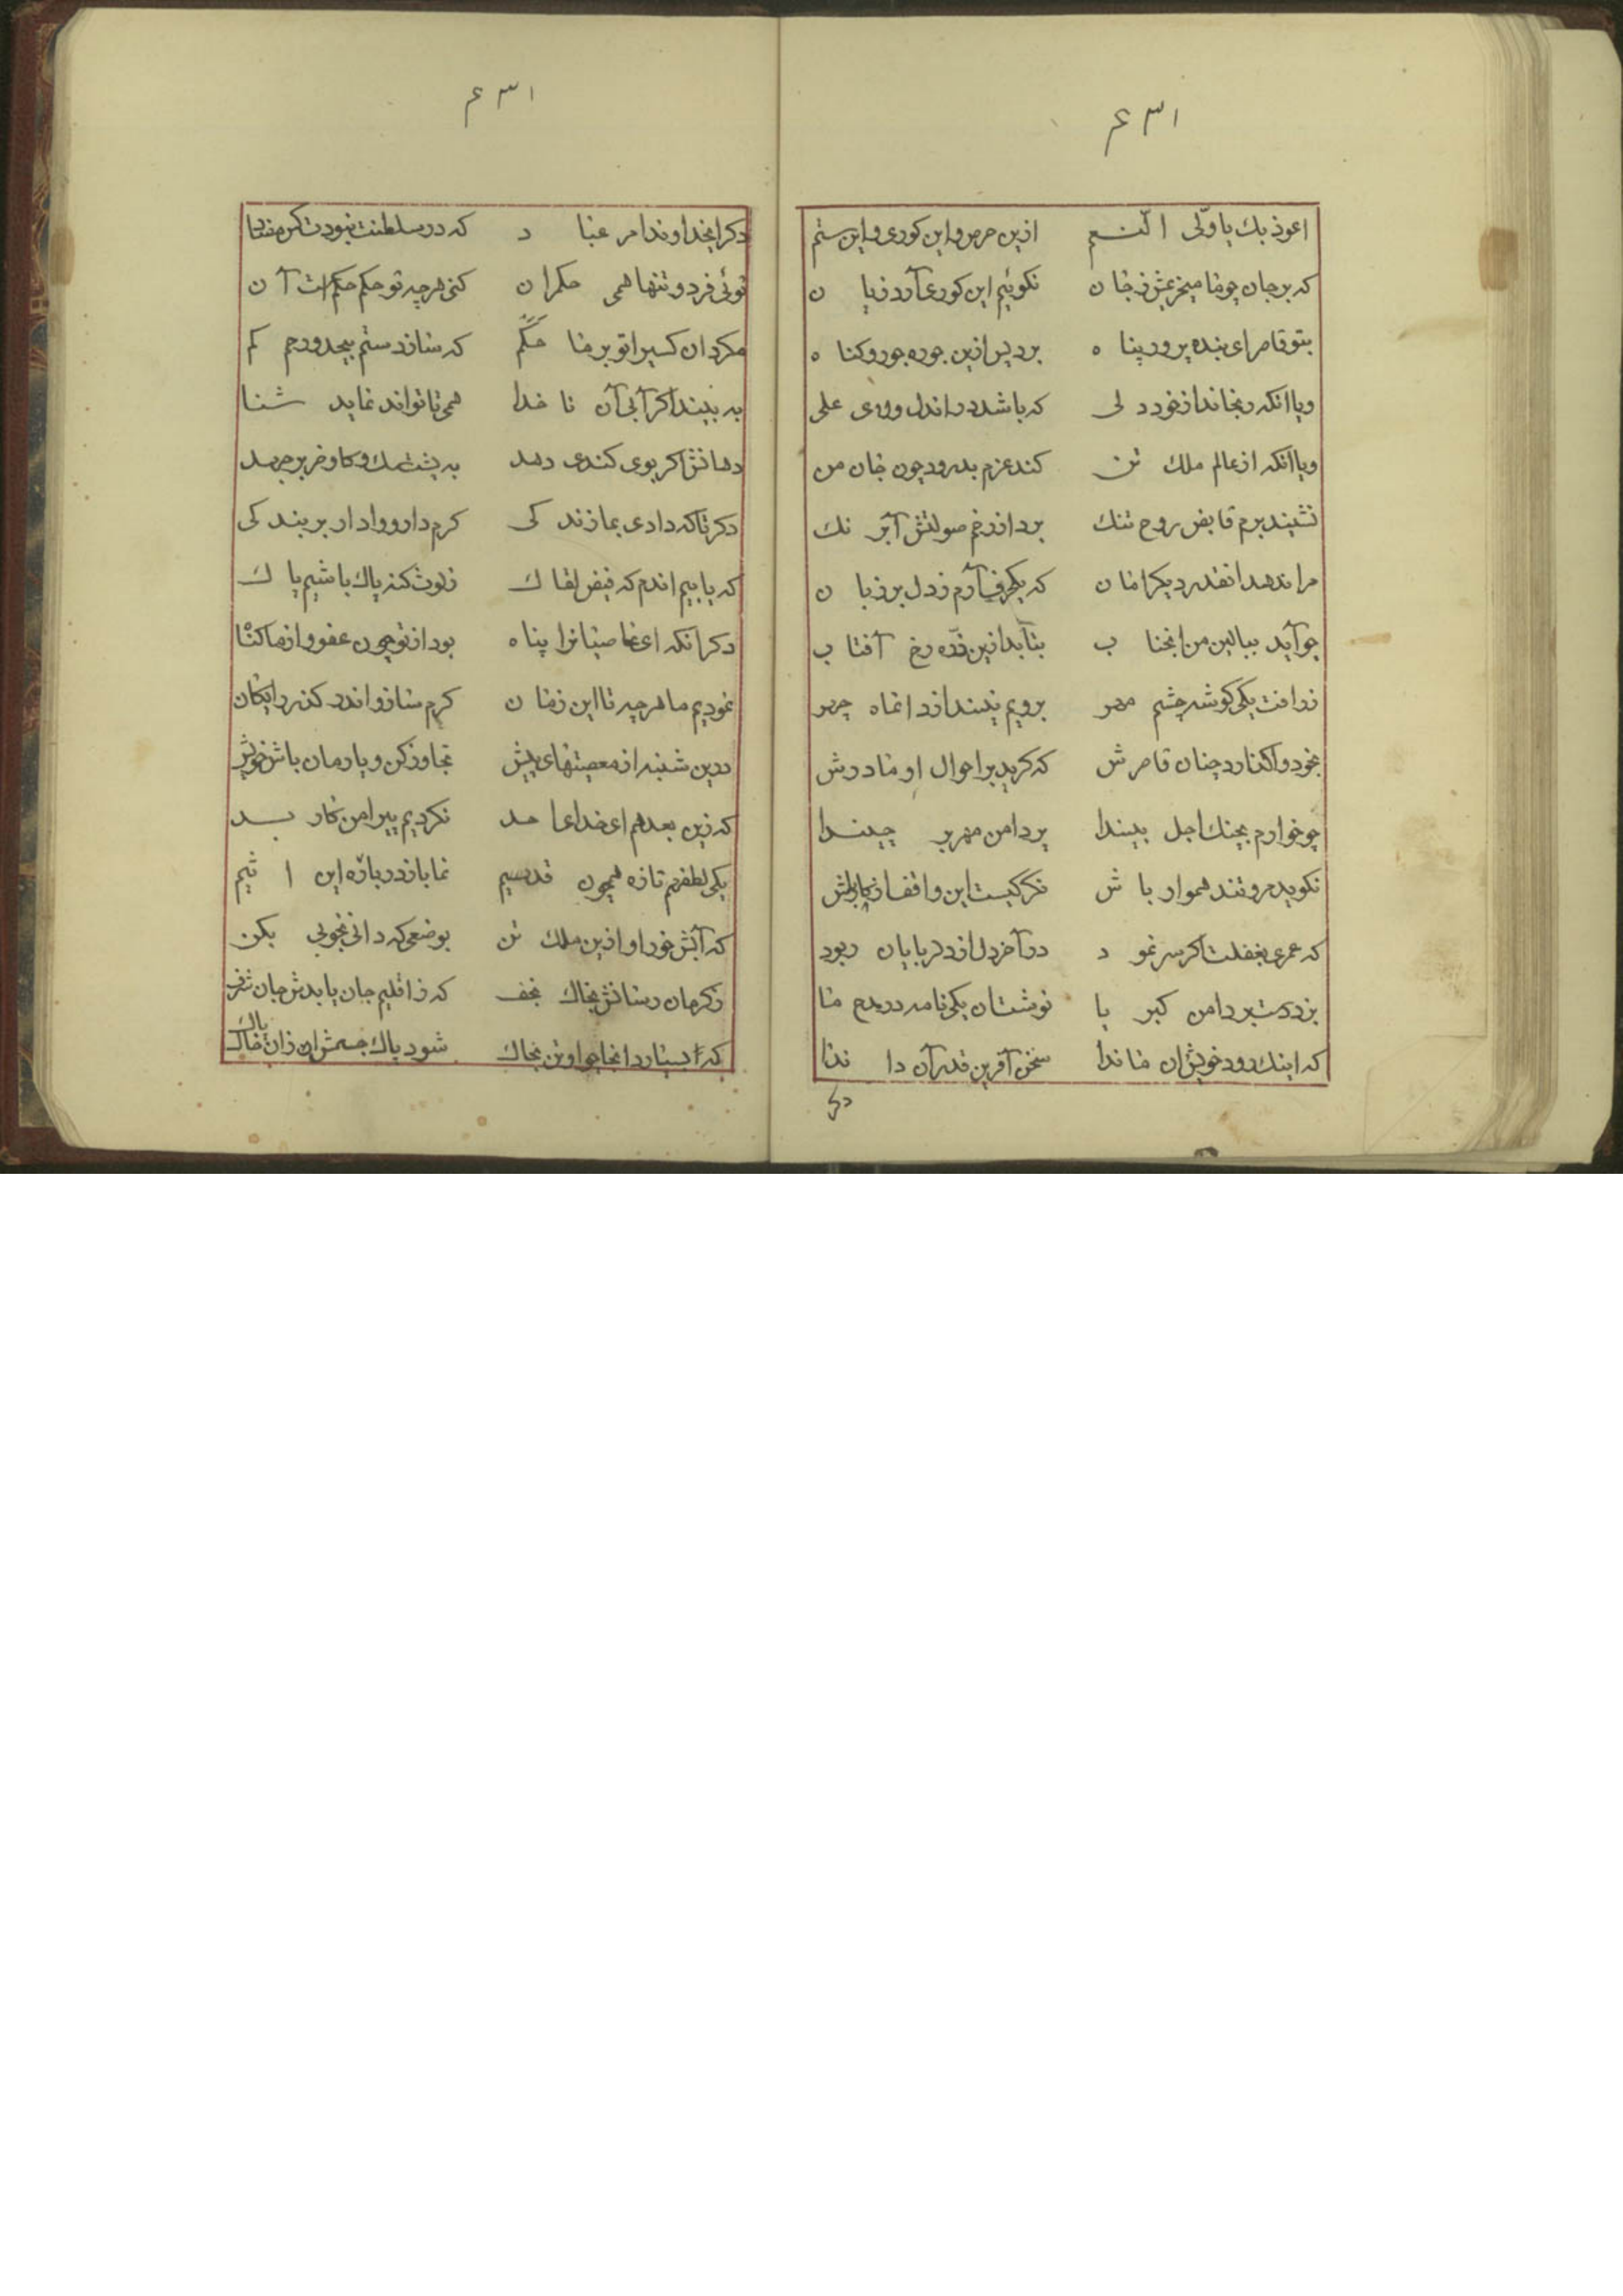 ۶۳۱
اعوذ بك یا ولّی النعم ازین حرص و این کوری و این ستم
که بر جان چو ما نکوئیم این کوری آرد زیان
بتو قاصر ای بنده پرور پناه برد پس ازین جوره جور و کناه
ویا انکه رنجاند از خود دلی که باشد در اندل ولای علی
ویا انکه از عالم ملك تن کند عزم بدرود چون جان من
نشیند برم قابض روح تنك برد از رخم صولتش آب رنك
مرا ندهد انقدر دیکر امان که یکحرف آرم ز دل بر زبان
چو آید ببالین من انجناب بتابد ازین ذرّه رخ آفتاب
ز رافت یکی کوشه چشم مهر برویم نیندازد انماه چهر
بخود واکذارد چنان قاصرش که کرید بر احوال او مادرش
چو خوارم بچنك اجل بیندا پر دامن مهر بر چیندا
نکوید مرو تند هموار باش نکر کیست این واقف از کار باش
که عمری بغفلت اکر سر نمود در آخر دل از دلربایان ربود
بزد دست بر دامن کبریا نوشتان یکی نامه در مدح ما
که اینك رود خویش از ما ندا سخن آفرین قدر آن داندا
دکر
۶۳۱
دکر ایخداوندامر عباد که در سلطنت نبودت کس مضاد
توئی فرد و تنها همی حکمران کنی هرچه تو حکم حکم است آن
مکردان کسیرا تو بر ما حکم که سازد ستم بیحد و رحم کم
به بیند اکر آبی آن ناخدا همی تا تواند نماید شنا
دهانش اکر بوی کندی دهد به پشت سك و کاو و خر بر جهد
دکر تا که دادی بما زندکی کرم دار و وادار بر بندکی
که یابیم اندم که فیض لقاك ز لوث کنه پاك باشیم پاك
دکر انکه ای عاصیانرا پناه بود از تو چون عفو و از ما کناه
نمودیم ما هرچه تا این زمان کرم ساز و اندر کذر رایکان
درین شنبه از معصیتهای پیش تجاوز کن و یارمان باش خویش
که زین بعد هم ای خدای احد نکردیم پیرامن کار بد
یکی لطف هم تازه همچون قدیم نما باز درباره این اثیم
که آبش خور او ازین ملك تن بوضعی که دانی بخوبی بکن
ز کرمان رسانش بخاك نجف که ز اقلیم جان یابدش جان شرف
شود پاك جسمش از آن خاك پاك